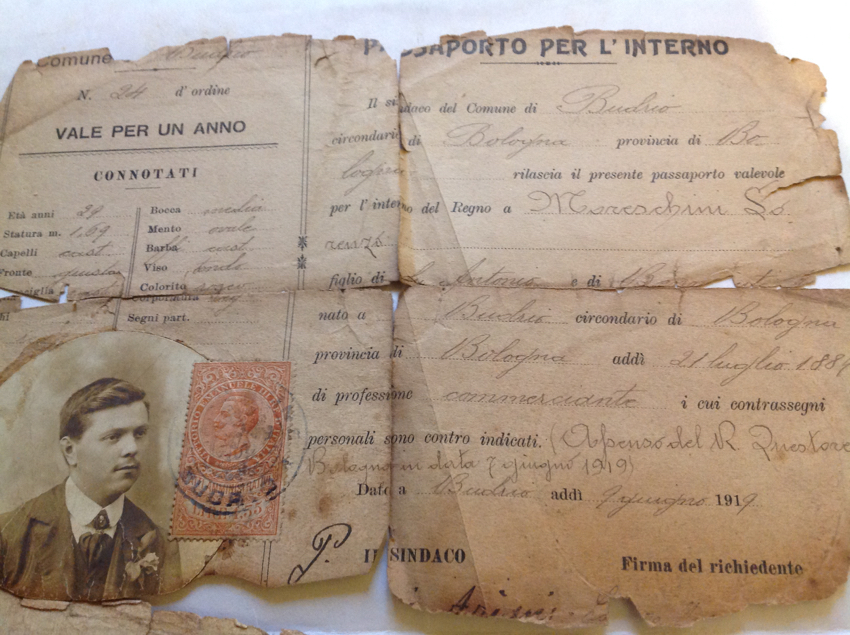 Comune Budrio
N. 24 d' ordine
VALE PER UN ANNO
CONNOTATI
Età anni 29
Statura m. 1,69
Capelli cast.
Fronte giusta
Bocca media
Mento ovale
Barba cast.
Viso tondo
Colorito
Corporatura
Segni part.
PASSAPORTO PER L' INTERNO
Il sindaco del Comune di Budrio
circondario di Bologna provincia di Bo-
logna rilascia il presente passaporto valevole
per l'interno del Regno a Mareschini Lo-
renzo
figlio di Antonio e di
nato a Budrio circondario di Bologna
provincia di Bologna addì 21 luglio 1889
di professione commerciante i cui contrassegni
personali sono contro indicati. (Assenso del R. Questore
Bologna in data 7 giugno 1919)
Dato a Budrio addì 9 giugno 1919
P. IL SINDACO
Firma del richiedente
BUDRIO